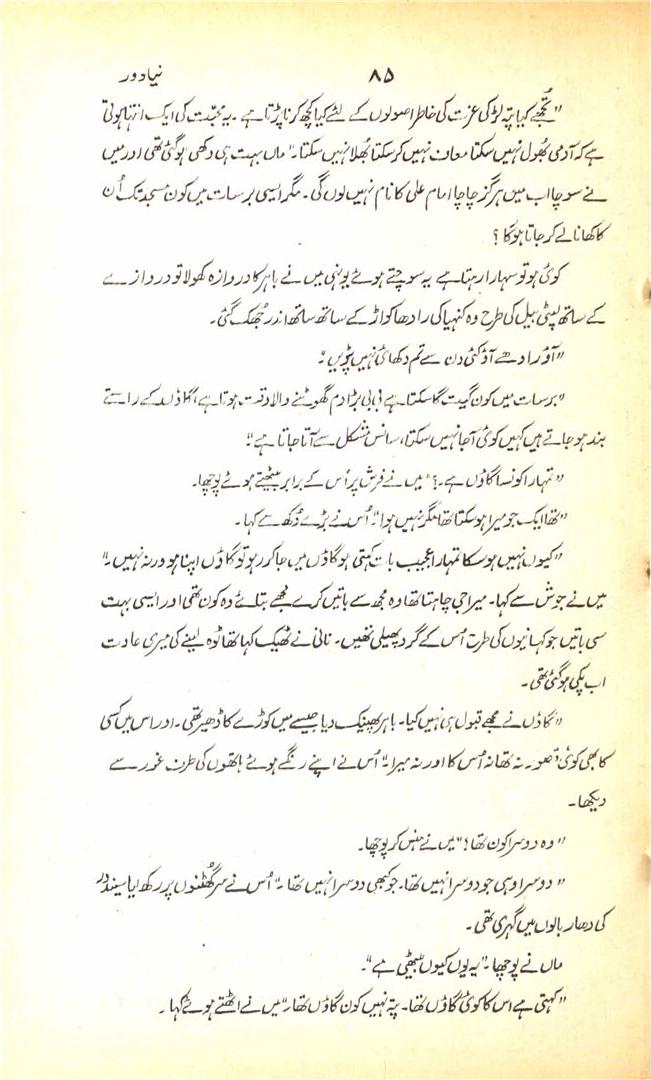 ۸۵
نیا دور
"تجھے کیا پتہ لڑکی عزت کی خاطر اصولوں کے لئے کیا کچھ کرنا پڑتا ہے۔ یہ محبّت کی ایک انتہا ہوتی
ہے کہ آدمی بھول نہیں سکتا معاف نہیں کر سکتا بھلا نہیں سکتا۔" ماں بہت ہی دکھی ہو گئی تھی اور میں
نے سوچا اب میں ہرگز چاچا امام علی کا نام نہیں لوں گی۔ مگر ایسی برسات میں کون مسجد تک اُن
کا کھانا لے کر جاتا ہوگا ؟
کوئی ہو تو سہارا رہتا ہے یہ سوچتے ہوئے یونہی میں نے باہر کا دروازہ کھولا تو دروازے
کے ساتھ لپٹی بیل کی طرح وہ کنہیا کی رادھا کواڑ کے ساتھ ساتھ اندر جُھک گئی۔
"آؤ رادھے آؤ کئی دن سے تم دکھائی نہیں پڑیں"۔
"برسات میں کون گیت گا سکتا ہے بی بی بڑا دم گھوٹنے والا وقت ہوتا ہے، گاؤں کے راستے
بند ہو جاتے ہیں کہیں کوئی آ جا نہیں سکتا، سانس مشکل سے آتا جاتا ہے"۔
"تمہارا کونسا گاؤں ہے۔؟" میں نے فرش پر اُس کے برابر بیٹھتے ہوئے پوچھا۔
"تھا ایک جو میرا ہو سکتا تھا مگر نہیں ہوا"۔ اُس نے بڑے دُکھ سے کہا۔
"کیوں نہیں ہو سکا تمہارا عجیب بات کہتی ہو گاؤں میں جا کر رہو تو گاؤں اپنا ہو ورنہ نہیں۔"
میں نے جوش سے کہا۔ میرا جی چاہتا تھا وہ مجھ سے باتیں کرے مجھے بتائے وہ کون تھی اور ایسی بہت
سی باتیں جو کہانیوں کی طرح اُس کے گرد پھیلی تھیں۔ نانی نے ٹھیک کہا تھا ٹوہ لینے کی میری عادت
اب پکی ہو گئی تھی۔
"گاؤں نے مجھے قبول ہی نہیں کیا۔ باہر پھینک دیا جیسے میں کوڑے کا ڈھیر تھی۔ اور اس میں کسی
کا بھی کوئی قصور نہ تھا نہ اُس کا اور نہ میرا۔" اُس نے اپنے رنگے ہوئے ہاتھوں کی طرف غور سے
دیکھا۔
"وہ دوسرا کون تھا؟" میں نے ہنس کر پوچھا۔
"دوسرا وہی جو دوسرا نہیں تھا۔ جو کبھی دوسرا نہیں تھا۔" اُس نے سر گھٹنوں پر رکھ لیا سیندور
کی دھار بالوں میں گہری تھی۔
ماں نے پوچھا۔ "یہ یوں کیوں بیٹھی ہے"۔
"کہتی ہے اس کا کوئی گاؤں تھا۔ پتہ نہیں کون گاؤں تھا۔" میں نے اٹھتے ہوئے کہا۔